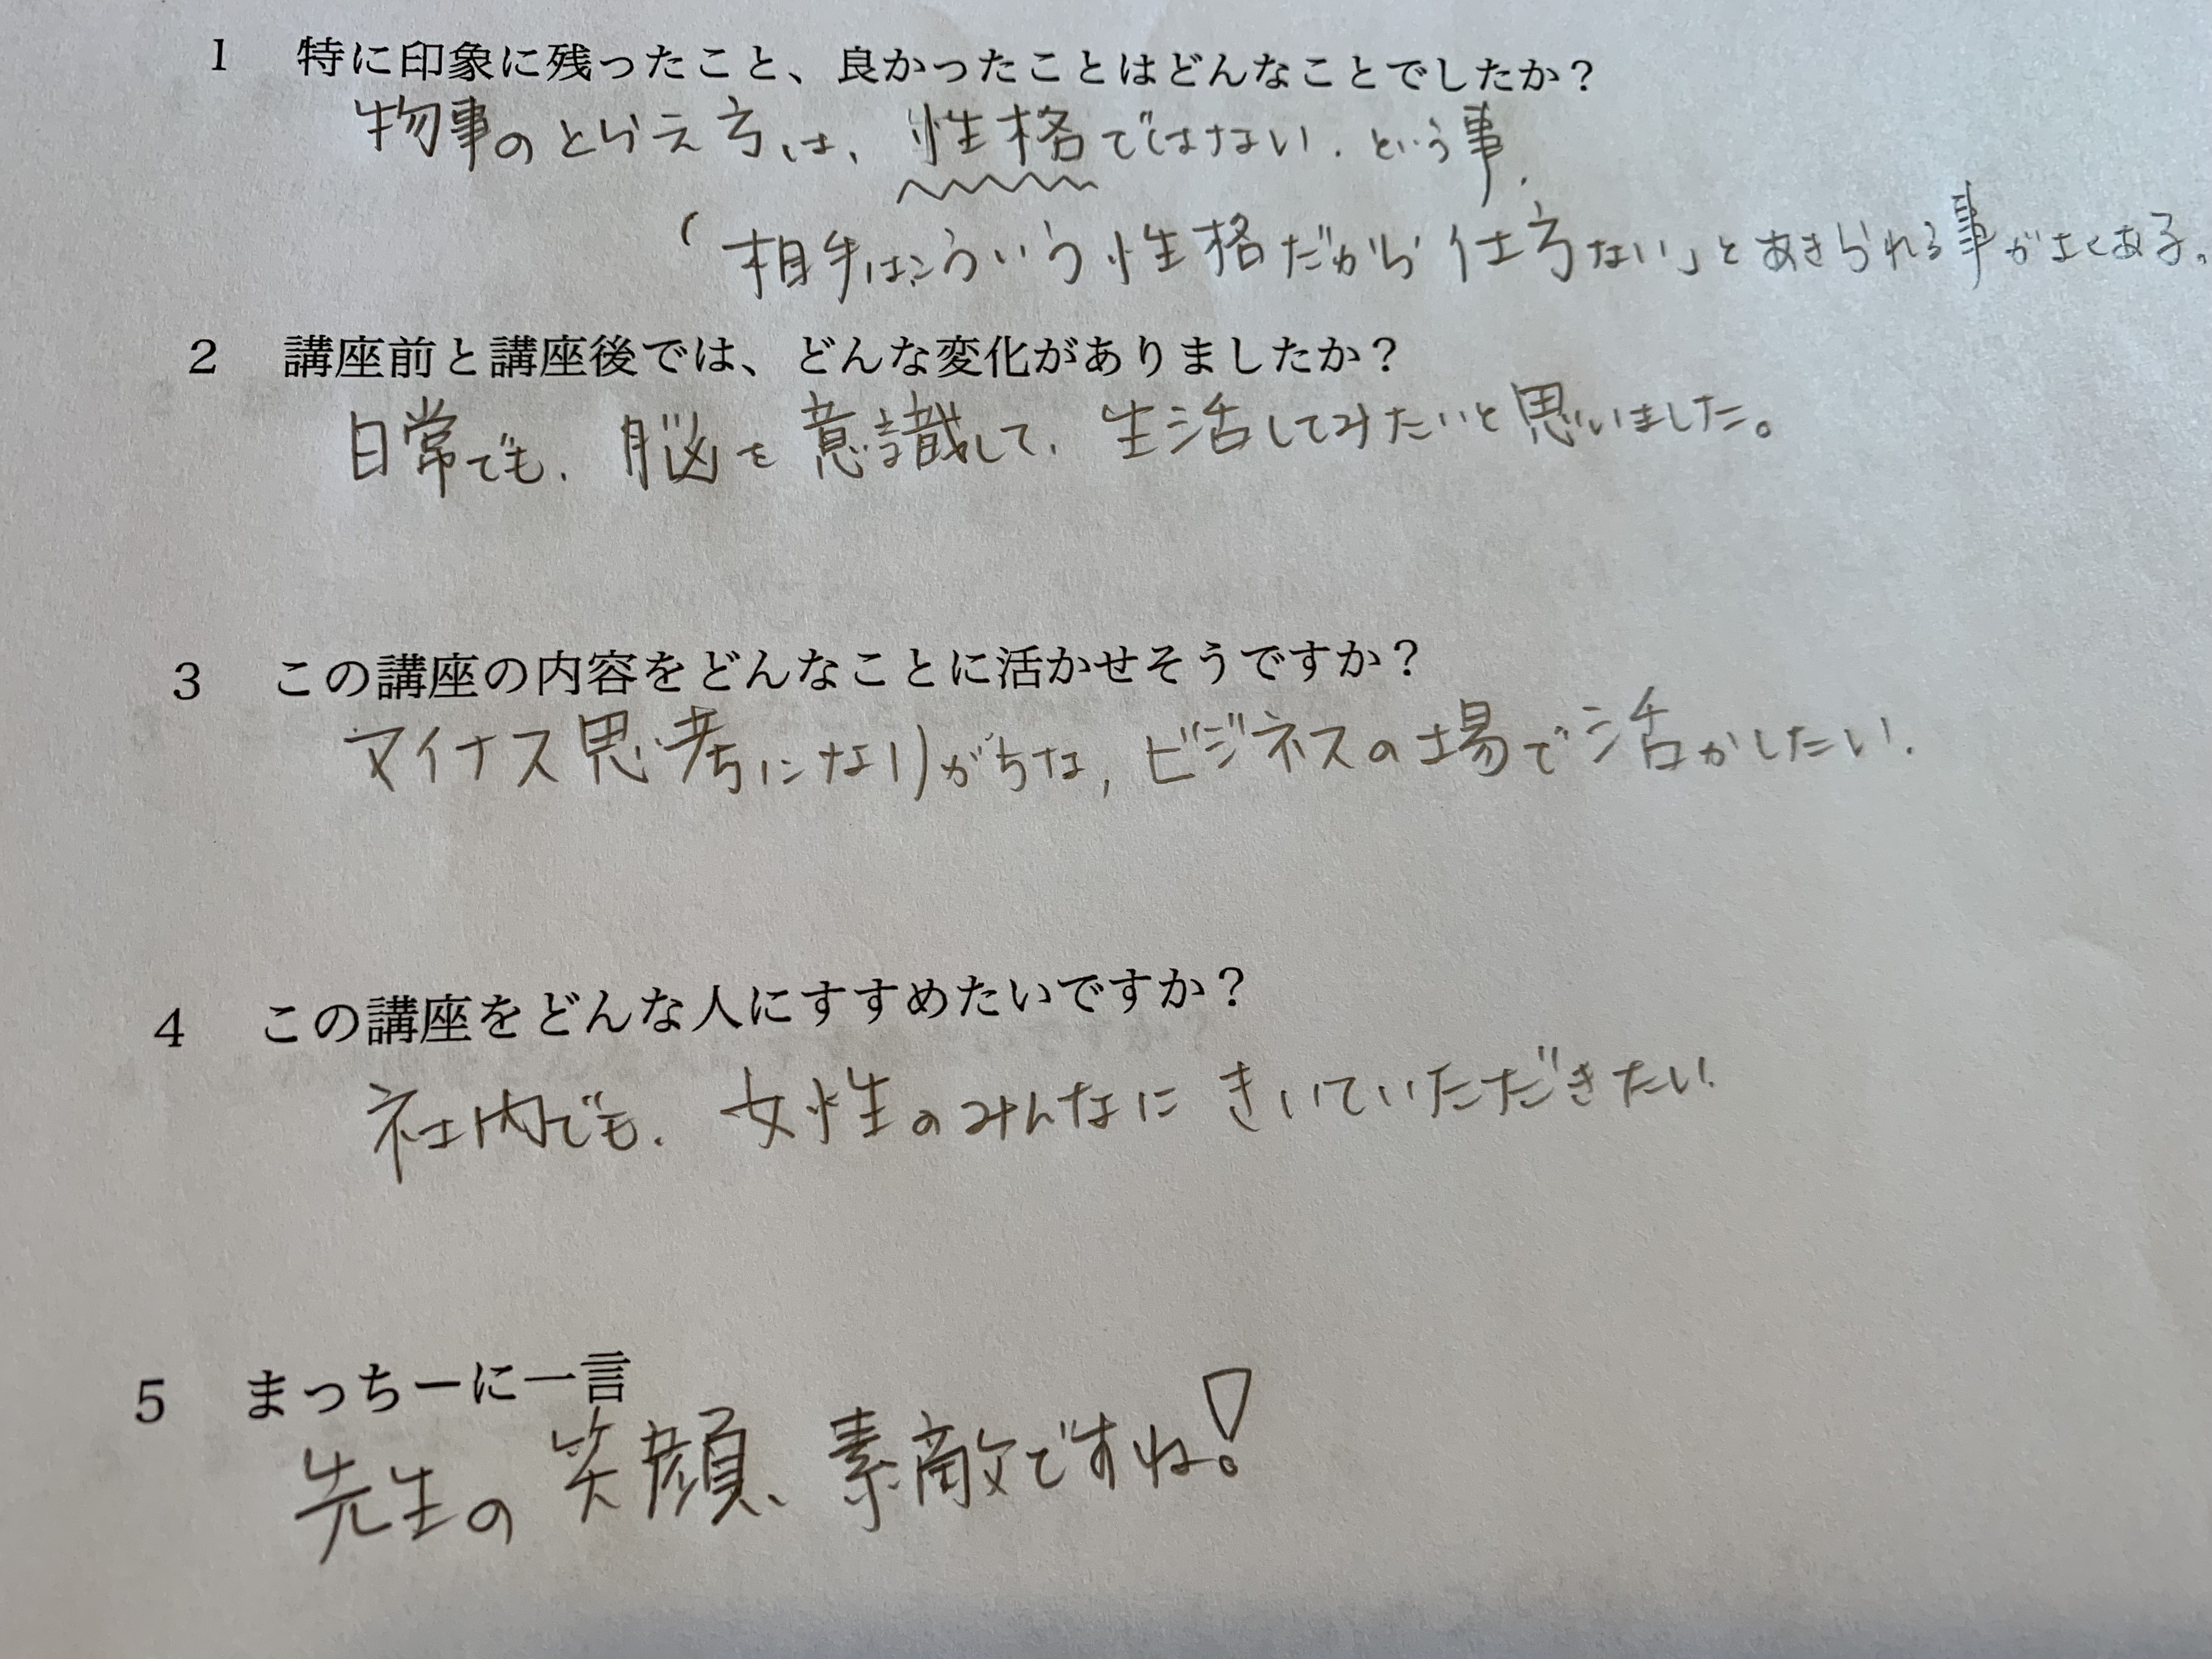 1 特に印象に残ったこと、良かったことはどんなことでしたか？
物事のとらえ方は、性格ではない.という事.
「相手はこういう性格だから仕方ない」とあきられる事がよくある.
2 講座前と講座後では、どんな変化がありましたか？
日常でも.脳を意識して.生活してみたいと思いました。
3 この講座の内容をどんなことに活かせそうですか？
マイナス思考になりがちな,ビジネスの場で活かしたい.
4 この講座をどんな人にすすめたいですか？
社内でも.女性のみんなにきいていただきたい.
5 まっちーに一言
先生の笑顔、素敵ですね!